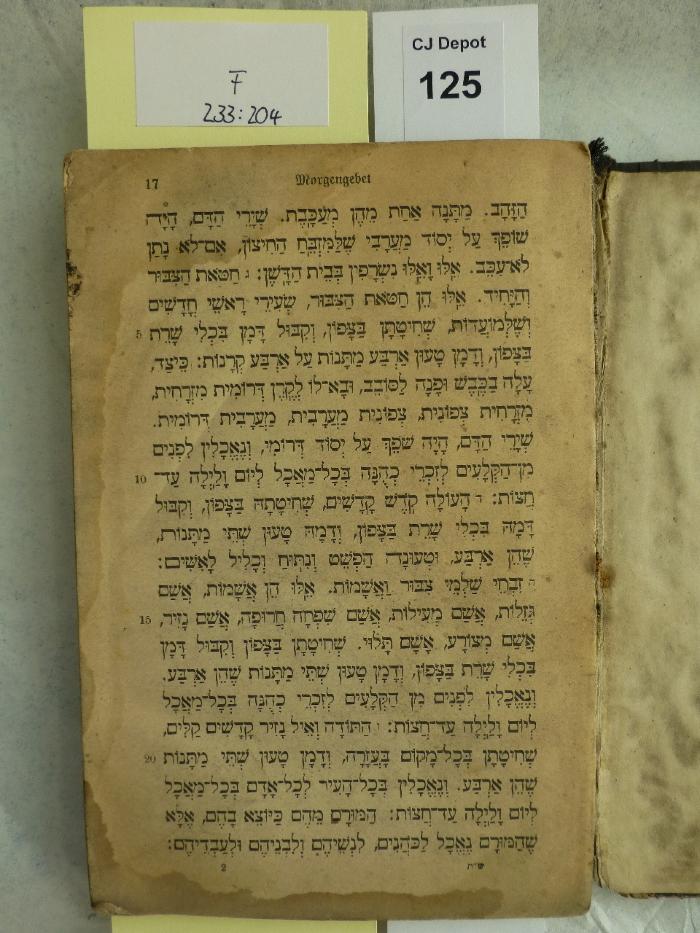 F
233:204
CJ Depot
125
17
Morgengebet
הַזָּהָב. מַתָּנָה אַחַת מֵהֶן מְעַכָּבֶת. שְׁיָרֵי הַדָּם, הָיָה
שׁוֹפֵךְ עַל יְסוֹד מַעֲרָבִי שֶׁלַּמִּזְבֵּחַ הַחִיצוֹן, אִם־לֹא נָתַן
לֹא־עִכֵּב. אֵלּוּ וָאֵלּוּ נִשְׂרָפִין בְּבֵית הַדָּשֶׁן: ג חַטֹּאת הַצִּבּוּר
וְהַיָּחִיד. אֵלּוּ הֵן חַטֹּאת הַצִּבּוּר, שְׂעִירֵי רָאשֵׁי חֳדָשִׁים
5 וְשֶׁלְּמוֹעֲדוֹת, שְׁחִיטָתָן בַּצָּפוֹן, וְקִבּוּל דָּמָן בִּכְלֵי שָׁרֵת
בַּצָּפוֹן, וְדָמָן טָעוּן אַרְבַּע מַתָּנוֹת עַל אַרְבַּע קְרָנוֹת: כֵּיצַד,
עָלָה בַכֶּבֶשׁ וּפָנָה לַסּוֹבֵב, וּבָא־לוֹ לְקֶרֶן דְּרוֹמִית מִזְרָחִית,
מִזְרָחִית צְפוֹנִית, צְפוֹנִית מַעֲרָבִית, מַעֲרָבִית דְּרוֹמִית.
שְׁיָרֵי הַדָּם, הָיָה שֹׁפֵךְ עַל יְסוֹד דְּרוֹמִי, וְנֶאֱכָלִין לִפְנִים
10 מִן־הַקְּלָעִים לְזִכְרֵי כְהֻנָּה בְּכָל־מַאֲכָל לְיוֹם וָלַיְלָה עַד־
חֲצוֹת: ד הָעוֹלָה קֹדֶשׁ קָדָשִׁים, שְׁחִיטָתָהּ בַּצָּפוֹן, וְקִבּוּל
דָּמָהּ בִּכְלֵי שָׁרֵת בַּצָּפוֹן, וְדָמָהּ טָעוּן שְׁתֵּי מַתָּנוֹת,
שֶׁהֵן אַרְבַּע. וּטְעוּנָה הַפְשֵׁט וְנִתּוּחַ וְכָלִיל לָאִשִּׁים:
ה זִבְחֵי שַׁלְמֵי צִבּוּר וַאֲשָׁמוֹת. אֵלּוּ הֵן אֲשָׁמוֹת, אֲשַׁם
15 גְּזֵלוֹת, אֲשַׁם מְעִילוֹת, אֲשַׁם שִׁפְחָה חֲרוּפָה, אֲשַׁם נָזִיר,
אֲשַׁם מְצוֹרָע, אָשָׁם תָּלוּי. שְׁחִיטָתָן בַּצָּפוֹן וְקִבּוּל דָּמָן
בִּכְלֵי שָׁרֵת בַּצָּפוֹן, וְדָמָן טָעוּן שְׁתֵּי מַתָּנוֹת שֶׁהֵן אַרְבַּע.
וְנֶאֱכָלִין לִפְנִים מִן הַקְּלָעִים לְזִכְרֵי כְהֻנָּה בְּכָל־מַאֲכָל
לְיוֹם וָלַיְלָה עַד־חֲצוֹת: ו הַתּוֹדָה וְאֵיל נָזִיר קָדָשִׁים קַלִּים,
20 שְׁחִיטָתָן בְּכָל־מָקוֹם בָּעֲזָרָה, וְדָמָן טָעוּן שְׁתֵּי מַתָּנוֹת
שֶׁהֵן אַרְבַּע. וְנֶאֱכָלִין בְּכָל־הָעִיר לְכָל־אָדָם בְּכָל־מַאֲכָל
לְיוֹם וָלַיְלָה עַד־חֲצוֹת: הַמּוּרָם מֵהֶם כַּיּוֹצֵא בָהֶם, אֶלָּא
שֶׁהַמּוּרָם נֶאֱכָל לַכֹּהֲנִים, לִנְשֵׁיהֶם וְלִבְנֵיהֶם וּלְעַבְדֵיהֶם:
2